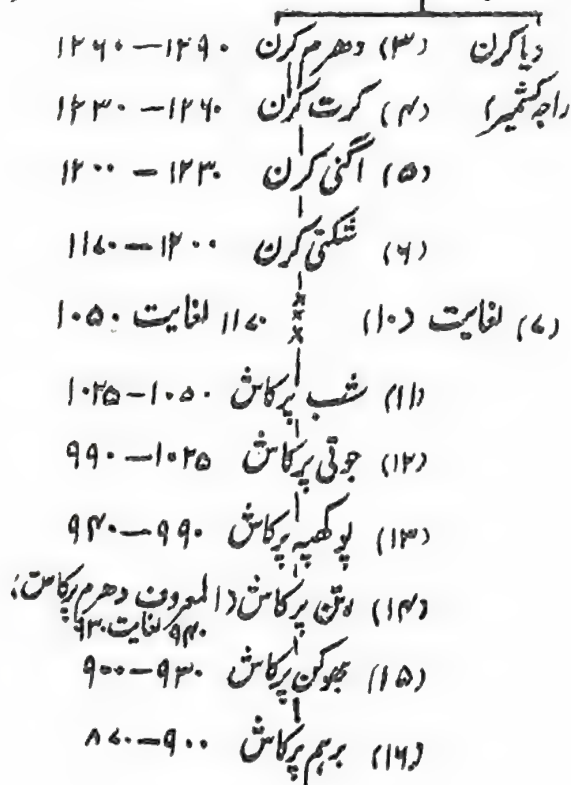 دیا کرن (۳) دھرم کرن ۱۲۹۰—۱۲۶۰
راجہ کشمیر) (۴) کرت کرن ۱۲۶۰—۱۲۳۰
(۵) اگنی کرن ۱۲۳۰ — ۱۲۰۰
(۶) شکتی کرن ۱۲۰۰—۱۱۷۰
(۷) لغایت (۱۰) ۱۱۷۰ لغایت ۱۰۵۰
(۱۱) شب پرکاش ۱۰۵۰—۱۰۲۵
(۱۲) جوتی پرکاش ۱۰۲۵—۹۹۰
(۱۳) پوکھپہ پرکاش ۹۹۰—۹۴۰
(۱۴) رتن پرکاش (المعروف دھرم پرکاش)
۹۴۰ لغایت ۹۳۰
(۱۵) بھوکن پرکاش ۹۳۰—۹۰۰
(۱۶) برہم پرکاش ۹۰۰—۸۷۰